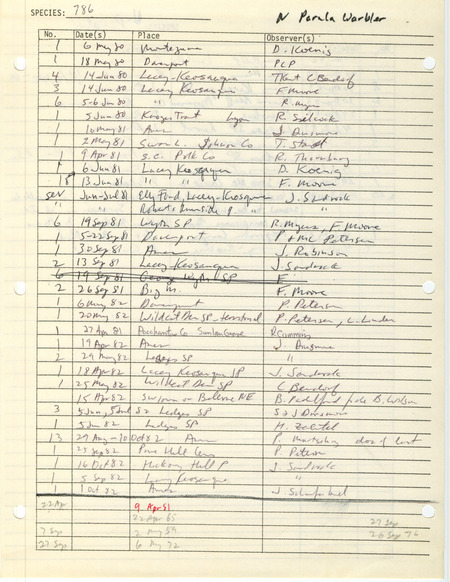 SPECIES: 786 N Parula Warbler
No. Date(s) Place Observer(s)
1 6 May 80 Montezuma D. Koenig
1 18 May 80 Davenport PCP
4 14 Jun 80 Lacey-Keosauqua T Kent C Bendorf
3 14 Jun 80 Lacey Keosauqua F Moore
6 5-6 Jun 80 " R. Myers
1 5 Jun 80 Lyon R. Silcock
1 10 May 81 Ames J. Dinsmore
1 2 May 81 Swan L. Johnson Co T. Staudt
1 9 Apr 81 S.C. Polk Co R. Thornburg
1 6 Jun 81 Lacey Keosauqua D. Koenig
15 13 Jun 81 " " F. Moore
sev Jun-Jul 81 Lacey-Keosauqua J. Sandrock
" " " "
6 19 Sep 81 Wapsi SP R. Myers, F Moore
1 5-22 Sep 81 Davenport P + MC Petersen
1 30 Sep 81 Ames J. Robinson
2 13 Sep 81 Lacey-Keosauqua J. Sandrock
6 19 Sep 81 George Wyth SP F
2 26 Sep 81 Big M. F. Moore
1 6 May 82 Davenport P. Petersen
1 20 May 82 Wildcat Den SP - territorial P. Petersen, L. Linder
1 27 Apr 81 Pocahontas Co Sunken Grove R Cummins
1 19 Apr 82 Ames J. Dinsmore
2 29 May 82 Ledges SP "
1 18 Apr 82 Lacey Keosauqua SP J. Sandrock
1 25 May 82 Wildcat Den SP C Bendorf
15 Apr 82 NE
3 5 Jun, 5 Jul 82 Ledges SP S & J Dinsmore
1 5 Jun 82 Ledges SP H. Zaletel
13 29 Aug - 10 Oct 82 Ames
1 25 Sep 82 Pine Hill Cem P. Petersen
1 16 Oct 82 Hickory Hill P J. Sandrock
1 5 Sep 82 Lacey Keosauqua "
1 1 Oct 82 Ames
22 Apr 9 Apr 81
22 Apr 65 27 Sep
7 Sep 2 May 59 26 Sep 76
27 Sep 6 May 72